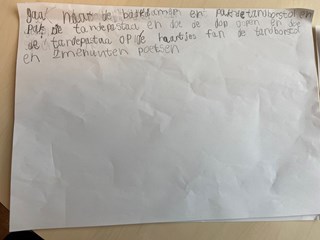 gaa naar de batkamer en pak de tandborstol en
pak de tandepastaa en doe de dop open en doe
de tandepastaa op de haartjes fan de tandborstol
en 2menuuten poetsen